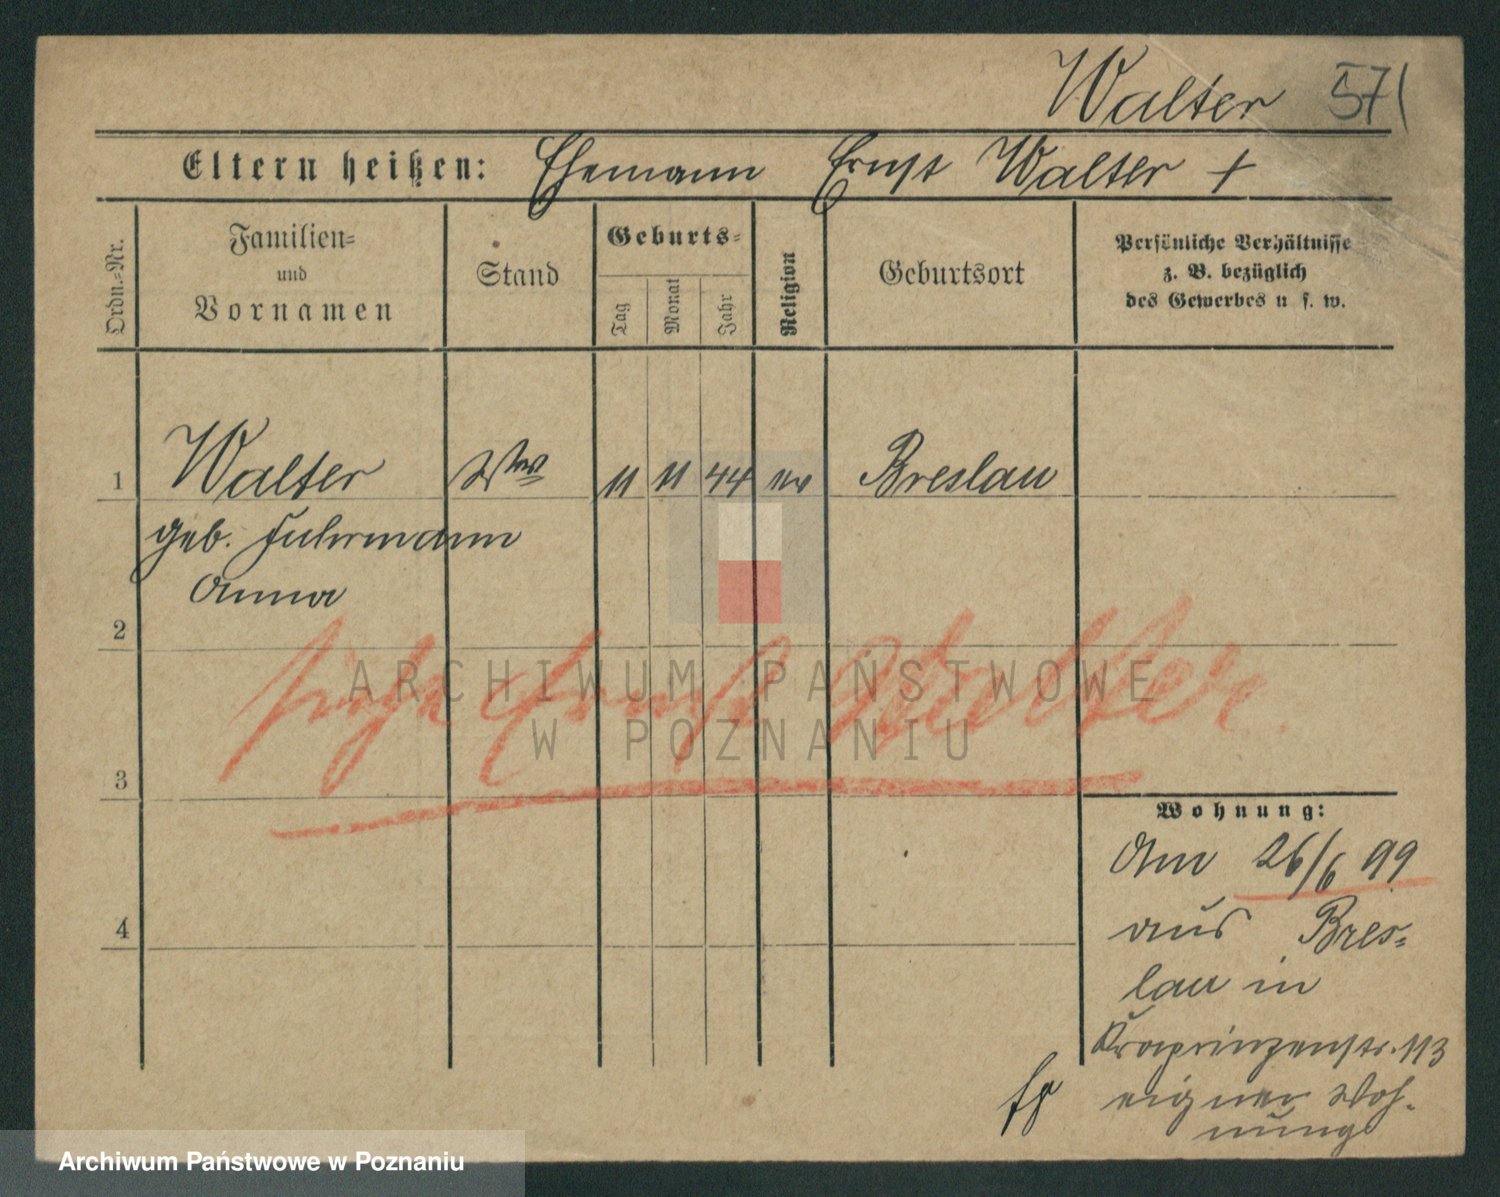 Walter 571
Eltern heißen: Ehemann Ernst Walter +
Ordn.=Nr.
Familien=
und
Vornamen
Stand
Geburts=
Tag
Monat
Jahr
Religion
Geburtsort
Persönliche Verhältnisse
z. B. bezüglich
des Gewerbes u. s. w.
1 Walter Ww 11 11 44 ev Breslau
geb. Fuhrmann
Anna
2
siehe Ernst Walter
3
4
Wohnung:
Am 26/6 99
aus Bres=
lau in
Kronprinzenstr. 113
eigner Woh-
nung
ARCHIWUM PAŃSTWOWE
W POZNANIU
Archiwum Państwowe w Poznaniu